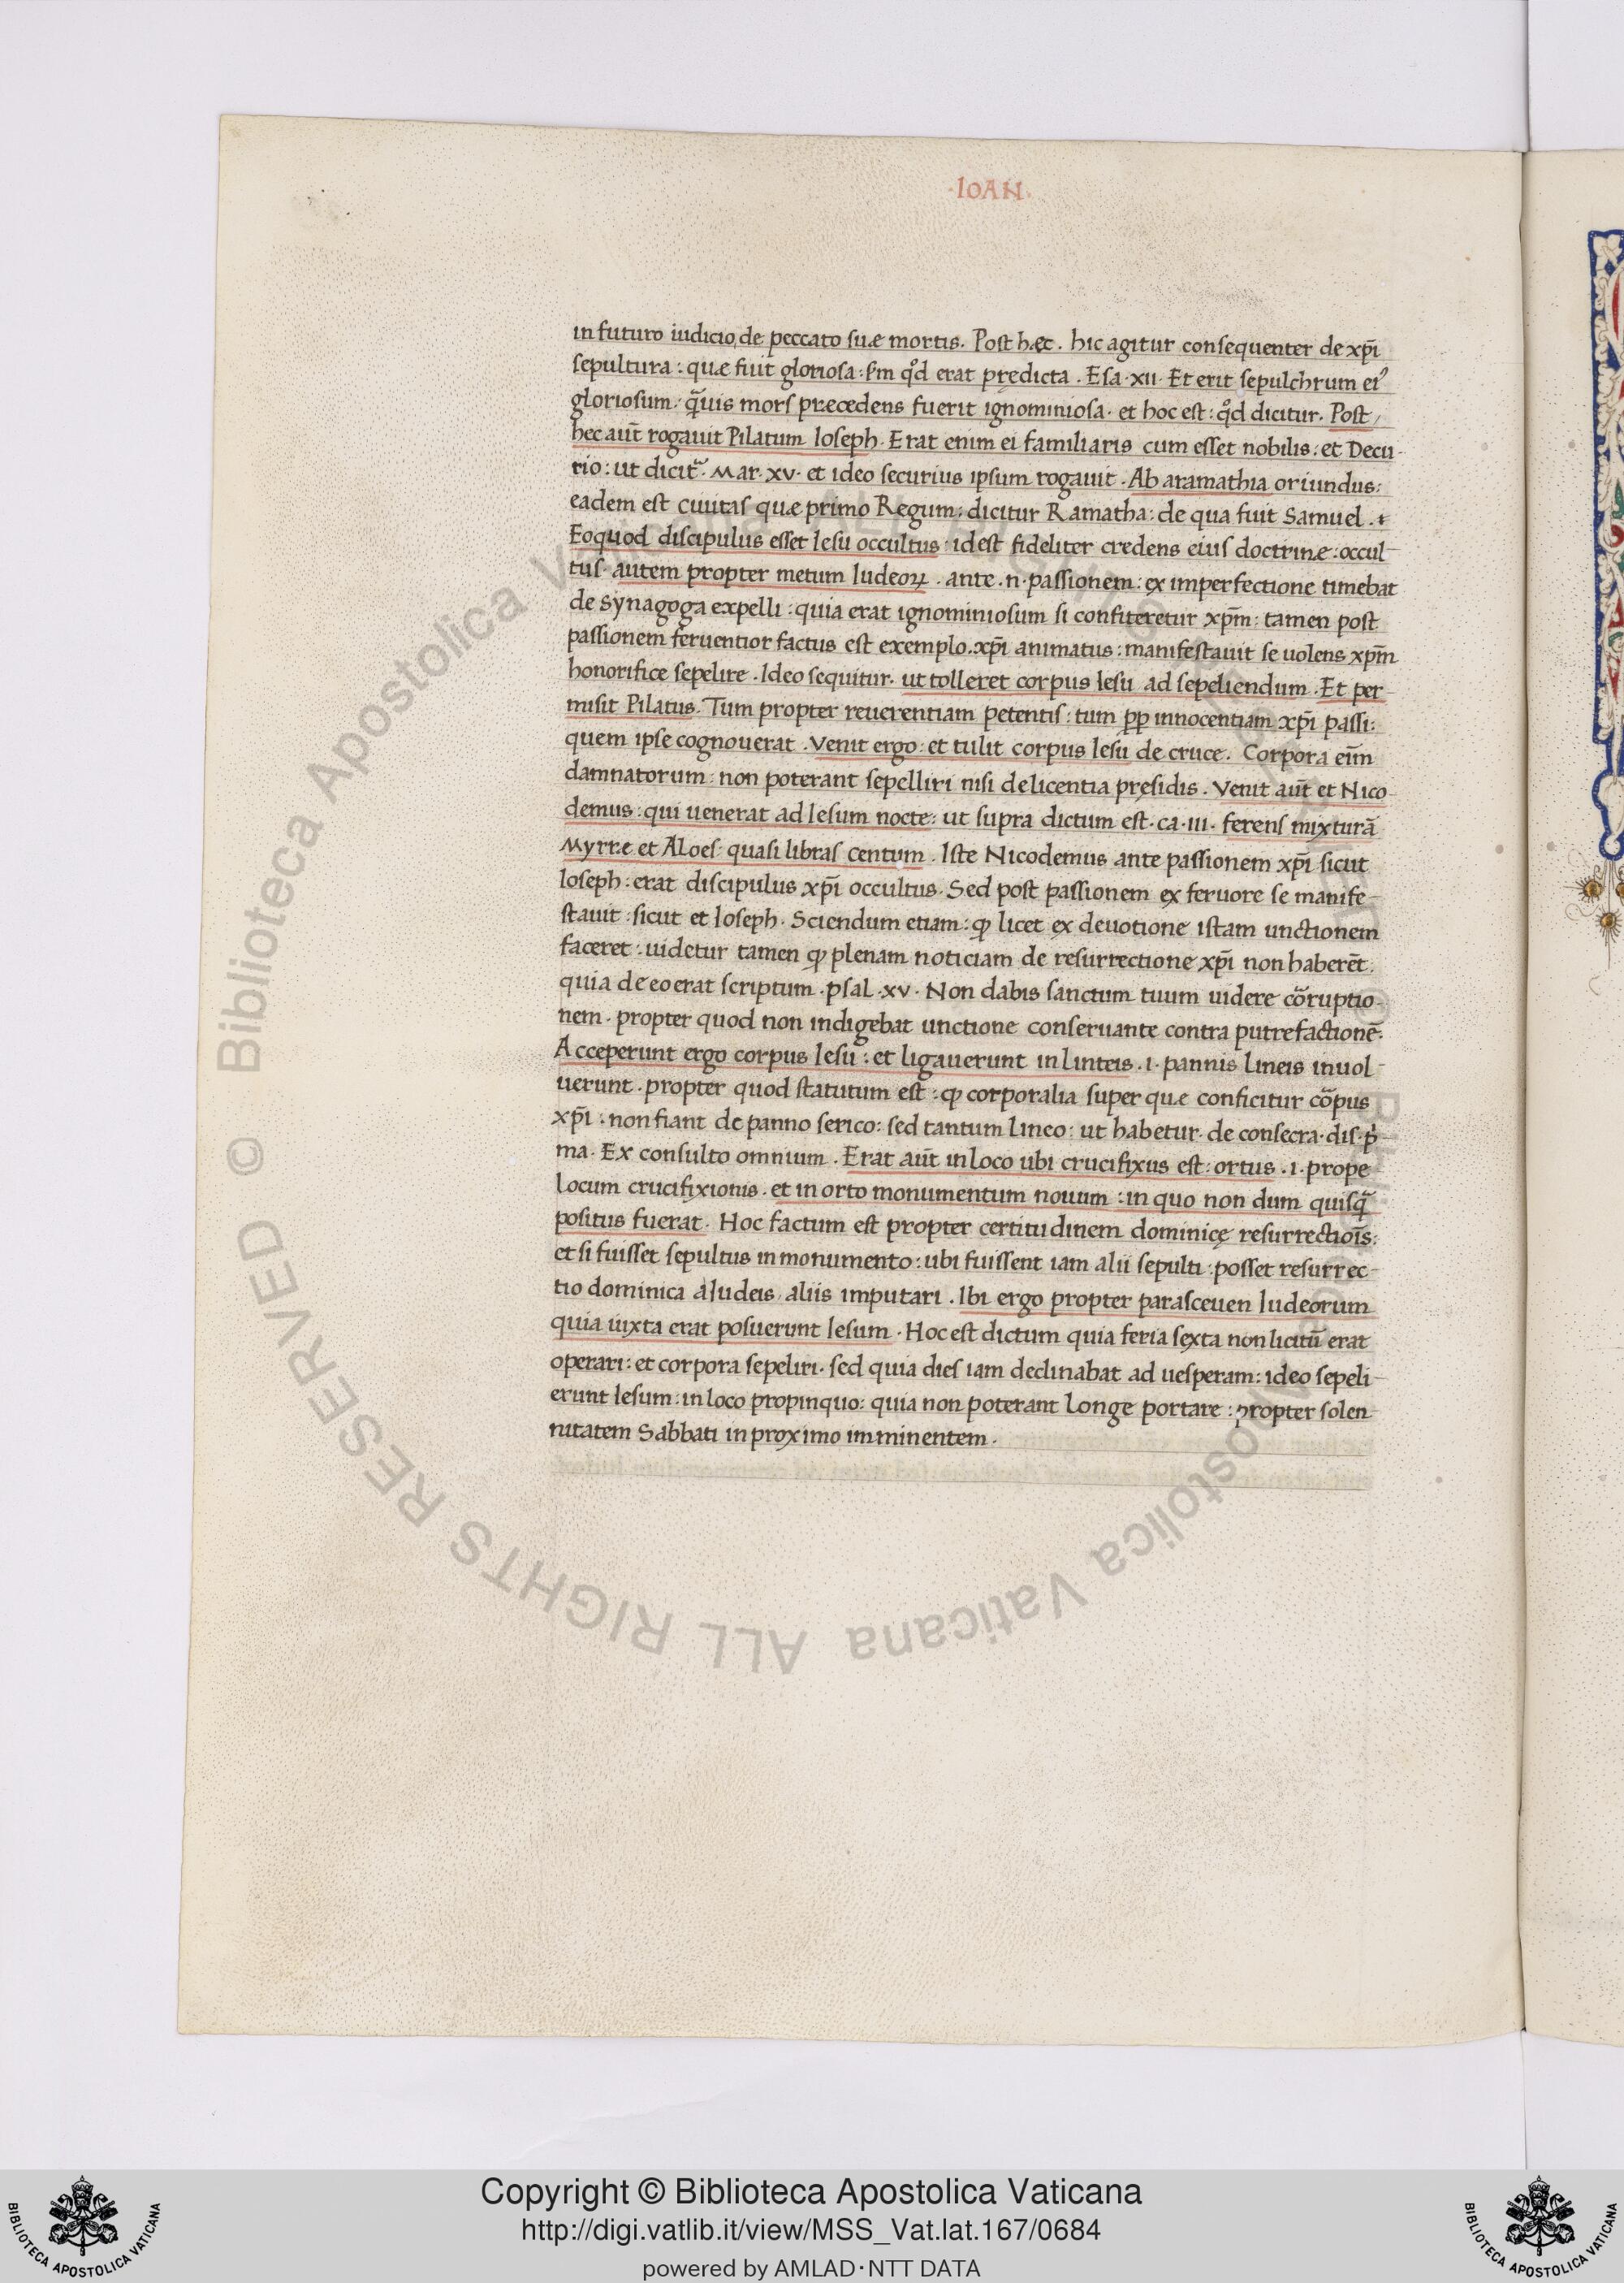 ·IOAN·
in futuro iudicio, de peccato suæ mortis. Post hæc. hic agitur consequenter de xp̄i
sepultura: quæ fuit gloriosa: s̄m qd̄ erat prędicta. Esa. xii. Et erit sepulchrum ei᾿
gloriosum. q̄uis mors præcedens fuerit ignominiosa. et hoc est: qd̄ dicitur. Post
hec aūt rogauit Pilatum Ioseph. Erat enim ei familiaris cum esset nobilis: et Decu-
rio: ut dicit᷑. Mar. xv. et ideo securius ipsum rogauit. Ab aramathia oriundus:
eadem est ciuitas quæ primo Regum: dicitur Ramatha: de qua fuit Samuel.
Eoquod discipulus esset Iesu occultus: idest fideliter credens eius doctrinæ: occul-
tus. autem propter metum Iudeoꝝ. ante .n. passionem: ex imperfectione timebat
de synagoga expelli: quia erat ignominiosum si confiteretur xp̄m: tamen post
passionem feruentior factus est exemplo. xp̄i animatus: manifestauit se uolens xp̄m
honorifice sepelire. Ideo sequitur. ut tolleret corpus Iesu ad sepeliendum. Et per-
misit Pilatus. Tum propter reuerentiam petentis: tum pp̄ innocentiam xp̄i passi:
quem ipse cognouerat. Venit ergo: et tulit corpus Iesu de cruce. Corpora eīm
damnatorum: non poterant sepelliri nisi de licentia pręsidis. Venit aūt et Nico-
demus: qui uenerat ad Iesum nocte: ut supra dictum est. ca. iii. ferens mixturā
Myrræ et Aloes quasi libras centum. Iste Nicodemus ante passionem xp̄i sicut
Ioseph: erat discipulus xp̄i occultus. Sed post passionem ex feruore se manife-
stauit: sicut et Ioseph. Sciendum etiam: ꝙ licet ex deuotione istam unctionem
faceret: uidetur tamen ꝙ plenam noticiam de resurrectione xp̄i non haberēt:
quia de eo erat scriptum. psal. xv. Non dabis sanctum tuum uidere cōruptio-
nem. propter quod non indigebat unctione conseruante contra putrefactionē.
Acceperunt ergo corpus Iesu: et ligauerunt in linteis .i. pannis lineis inuol-
uerunt. propter quod statutum est: ꝙ corporalia super quæ conficitur cōpus
xp̄i: non fiant de panno serico: sed tantum lineo: ut habetur. de consecra. dis. p̄
ma. Ex consulto omnium. Erat aūt in loco ubi crucifixus est: ortus .i. prope
locum crucifixionis. et in orto monumentum nouum: in quo non dum quisq̄
positus fuerat. Hoc factum est propter certitudinem dominicę resurrectioīs:
et si fuisset sepultus in monumento: ubi fuissent iam alii sepulti: posset resurrec-
tio dominica a Iudeis, aliis imputari. Ibi ergo propter parasceuen Iudeorum
quia iuxta erat posuerunt Iesum. Hoc est dictum quia feria sexta non licitū erat
operari: et corpora sepeliri. sed quia dies iam declinabat ad uesperam: ideo sepeli-
erunt Iesum: in loco propinquo: quia non poterant longe portare: propter solen
nitatem Sabbati in proximo imminentem.
© Biblioteca Apostolica Vaticana ALL RIGHTS RESERVED
Copyright © Biblioteca Apostolica Vaticana
http://digi.vatlib.it/view/MSS_Vat.lat.167/0684
powered by AMLAD·NTT DATA
BIBLIOTECA APOSTOLICA VATICANA
BIBLIOTECA APOSTOLICA VATICANA